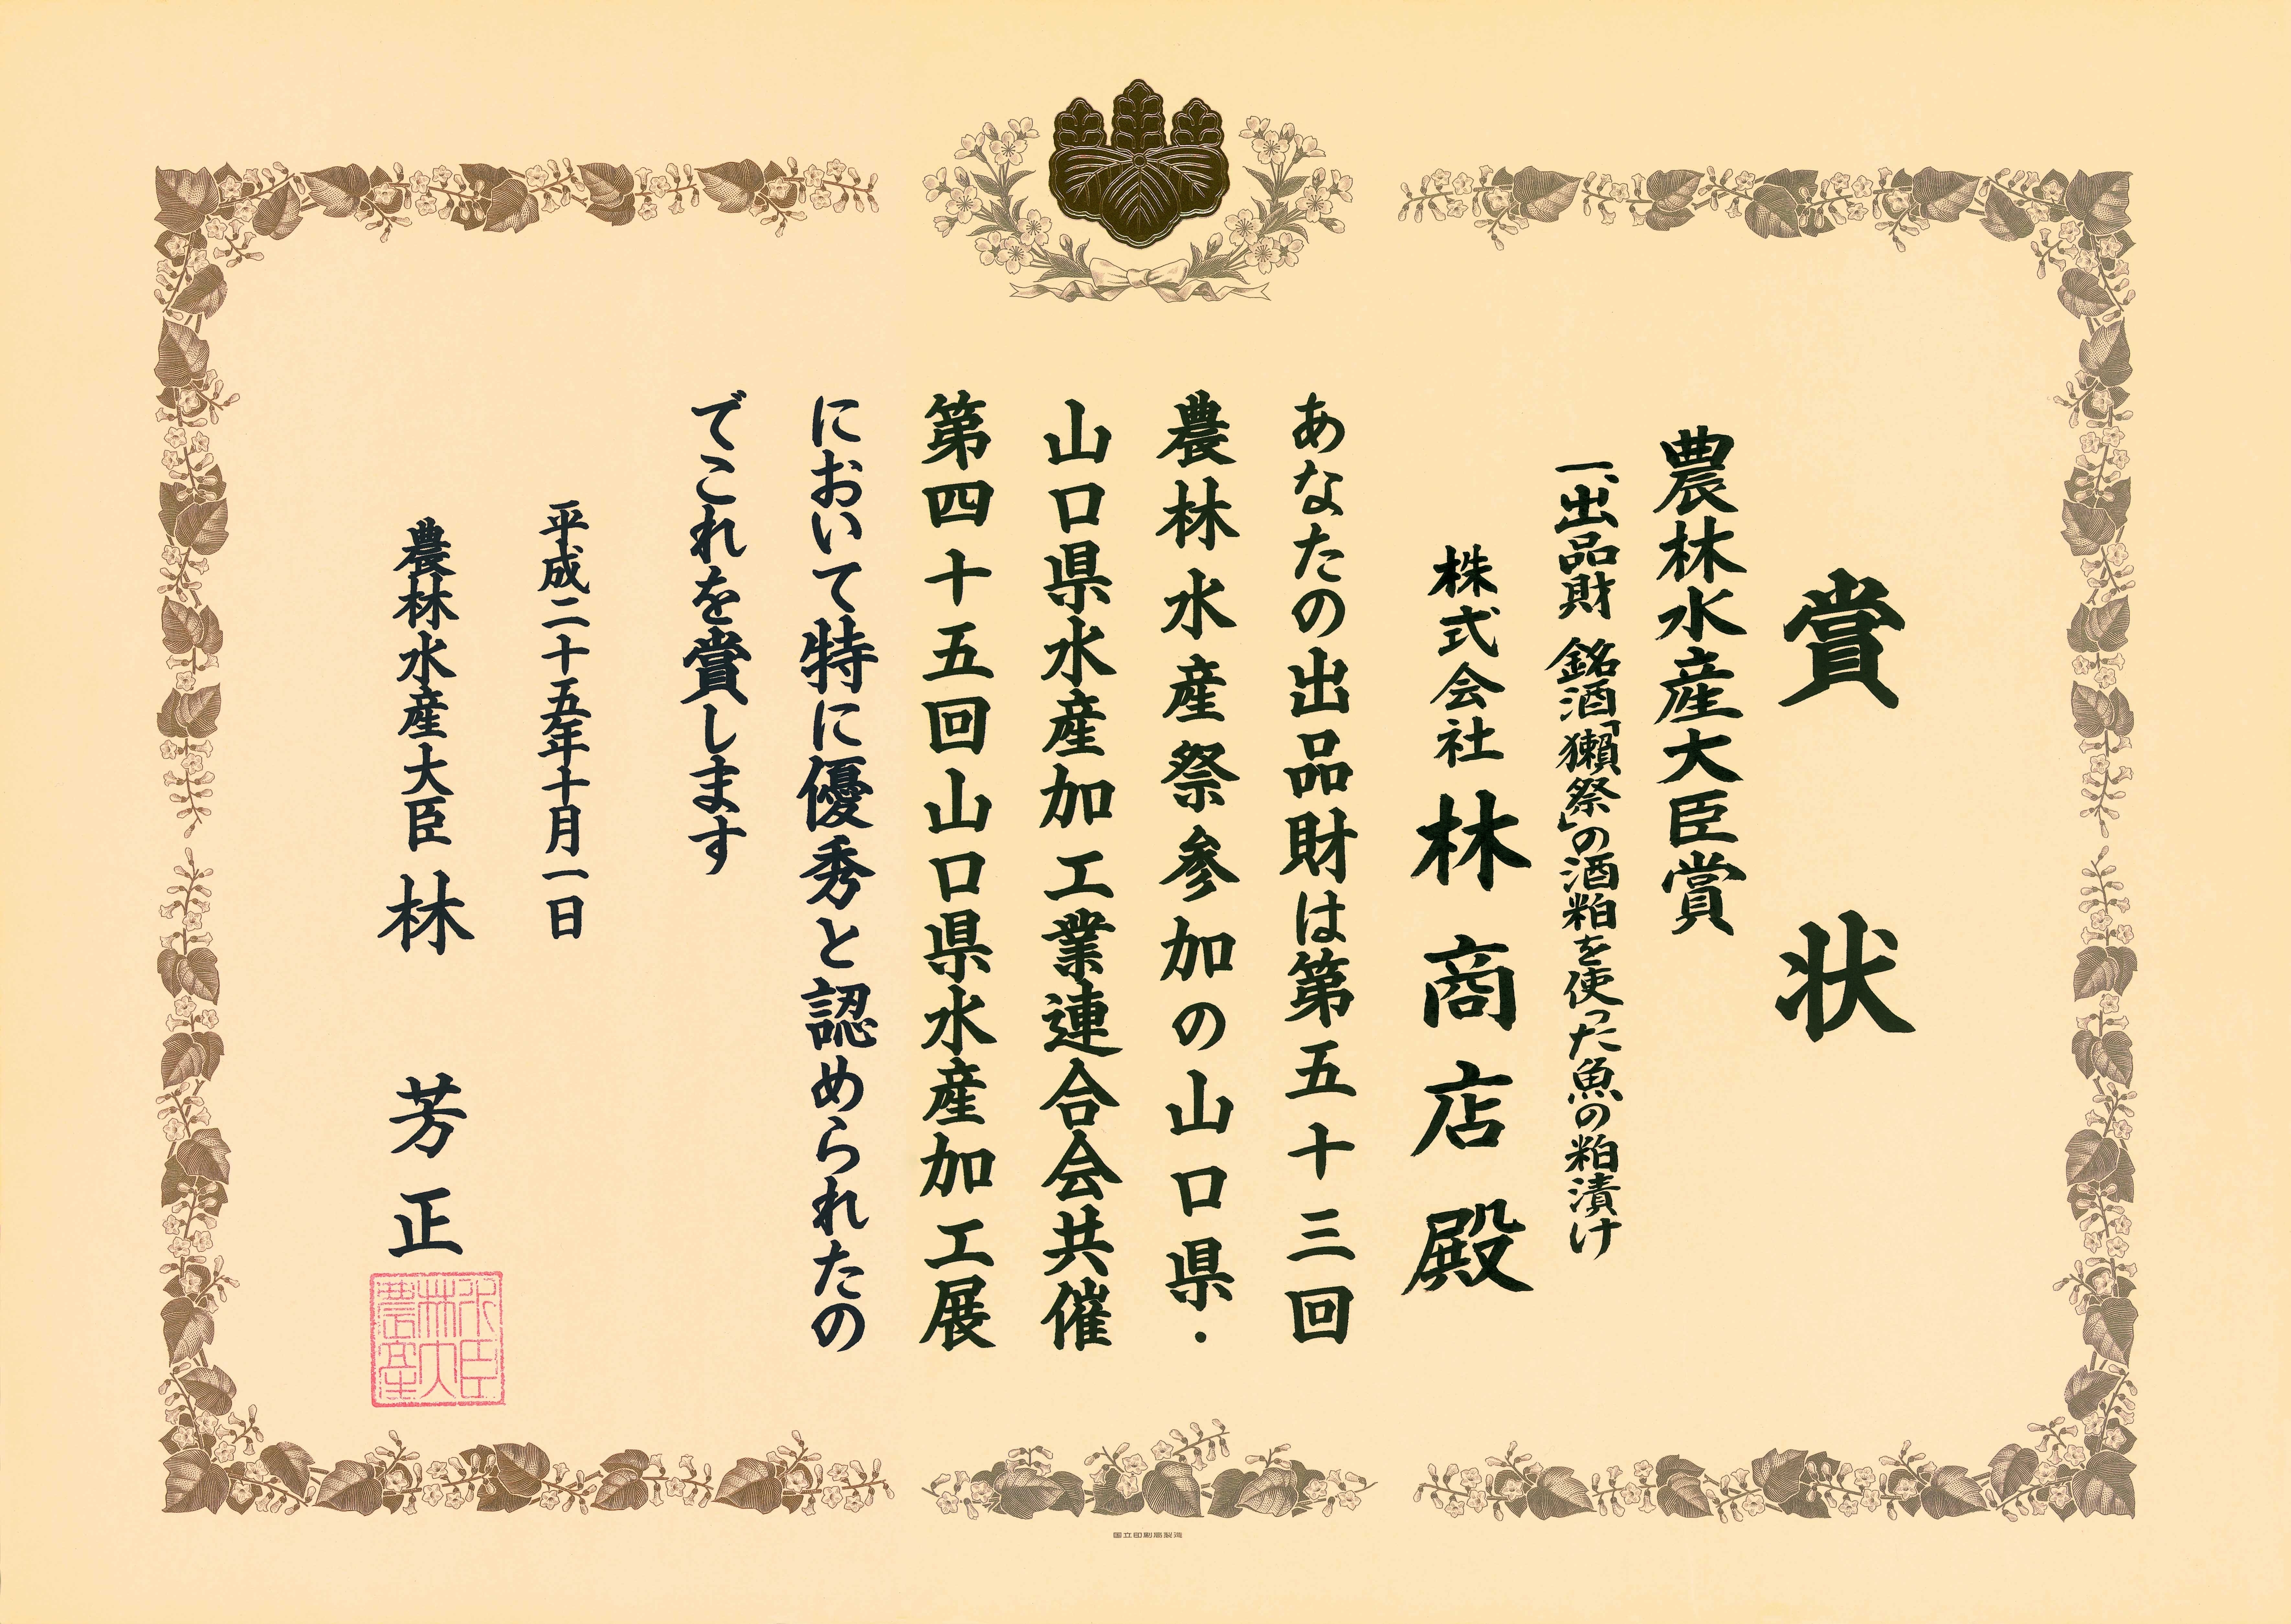 賞状
農林水産大臣賞
一、出品財 銘酒「獺祭」の酒粕を使った魚の粕漬け
株式会社 林商店殿
あなたの出品財は第五十三回
農林水産祭参加の山口県・
山口県水産加工業連合会共催
第四十五回山口県水産加工展
において特に優秀と認められたの
でこれを賞します
平成二十五年十月一日
農林水産大臣 林 芳正
農林水産大臣
国立印刷局製造